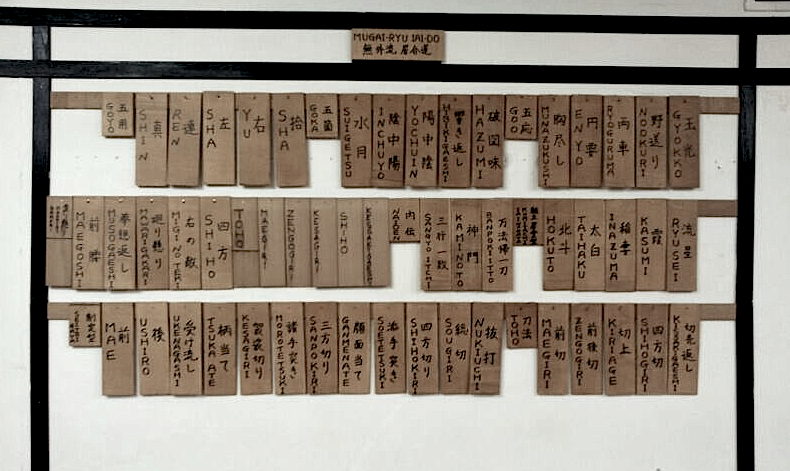 MUGAI-RYU IAI-DO
無外流 居合道
GOYO
五用
SHIN
真
REN
連
SHA
左
YU
右
SHA
捨
GOKA
五箇
SUIGETSU
水月
INCHUYO
陰中陽
YOCHUIN
陽中陰
HIBIKIGAESHI
響き返し
HAZUMI
破図味
GOO
五応
MUNAZUKUSHI
胸尽し
ENYO
円要
RYOGURUMA
両車
NOOKURI
野送り
GYOKKO
玉光
MAEGOSHI
前腰
MUSOGAESHI
夢想返し
MAWARIGAKARI
廻り懸り
MIGI NO TEKI
右の敵
SHIHO
四方
TOHO
MAEGIRI
ZENGOGIRI
KESAGIRI
SHIHO
NAIDEN
内伝
神門
万法帰一刀
HOKUTO
北斗
TAIHAKU
太白
INAZUMA
稲妻
KASUMI
霞
RYUSEI
流星
制定型
MAE
前
USHIRO
後
UKENAGASHI
受け流し
TSUKA ATE
柄当て
KESAGIRI
袈裟切り
MOROTETSUKI
諸手突き
SANPOKIRI
三方切り
GANMENATE
顔面当て
SOETETSUKI
添手突き
SHIHOKIRI
四方切り
SOUGIRI
総切り
NUKIUCHI
抜打
TOHO
刀法
MAEGIRI
前切
ZENGOGIRI
前後切
KIRIAGE
切上
SHIHOGIRI
四方切
KISAKIGAESHI
切先返し